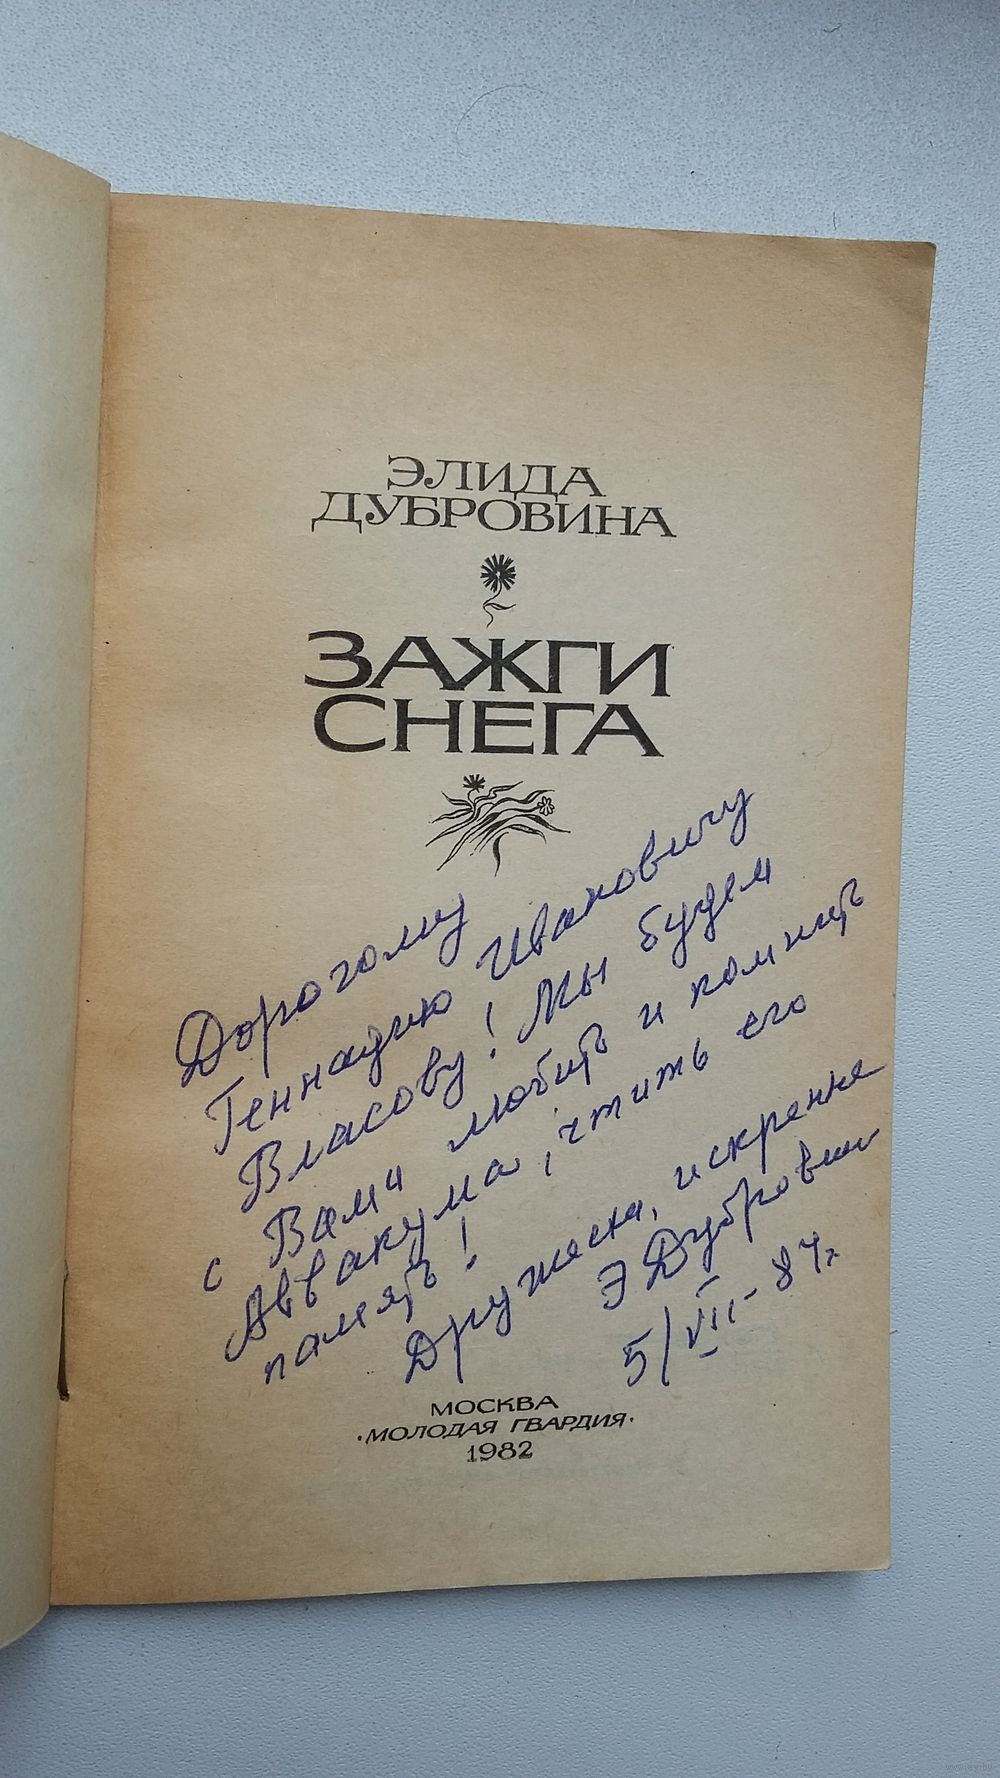 ЭЛИДА
ДУБРОВИНА
ЗАЖГИ
СНЕГА
Дорогому
Геннадию Ивановичу
Власову! Мы будем
с Вами любить и помнить
Аввакума, чтить его
память!
Дружески, искренне
Э Дубровин
5/VII-84г.
МОСКВА
«МОЛОДАЯ ГВАРДИЯ»
1982